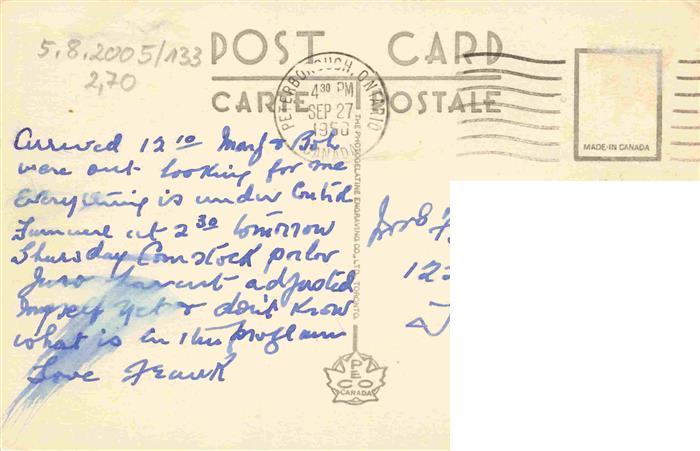 5.8.2005/133
2,70
POST CARD
CARTE POSTALE
PETERBOROUGH, ONTARIO
4 30 PM
SEP 27
1950
CANADA
MADE IN CANADA
Arrived 12 10 Marj & Bob
were out looking for me
Everything is under Control
Funeral at 2 30 tomorrow
Thursday Comstock parlor
Just havent adjusted
myself yet & dont know
what is in the program
Love Frank
THE PHOTOGELATINE ENGRAVING CO., LTD. TORONTO.
PECO
CANADA
Mrs F
12